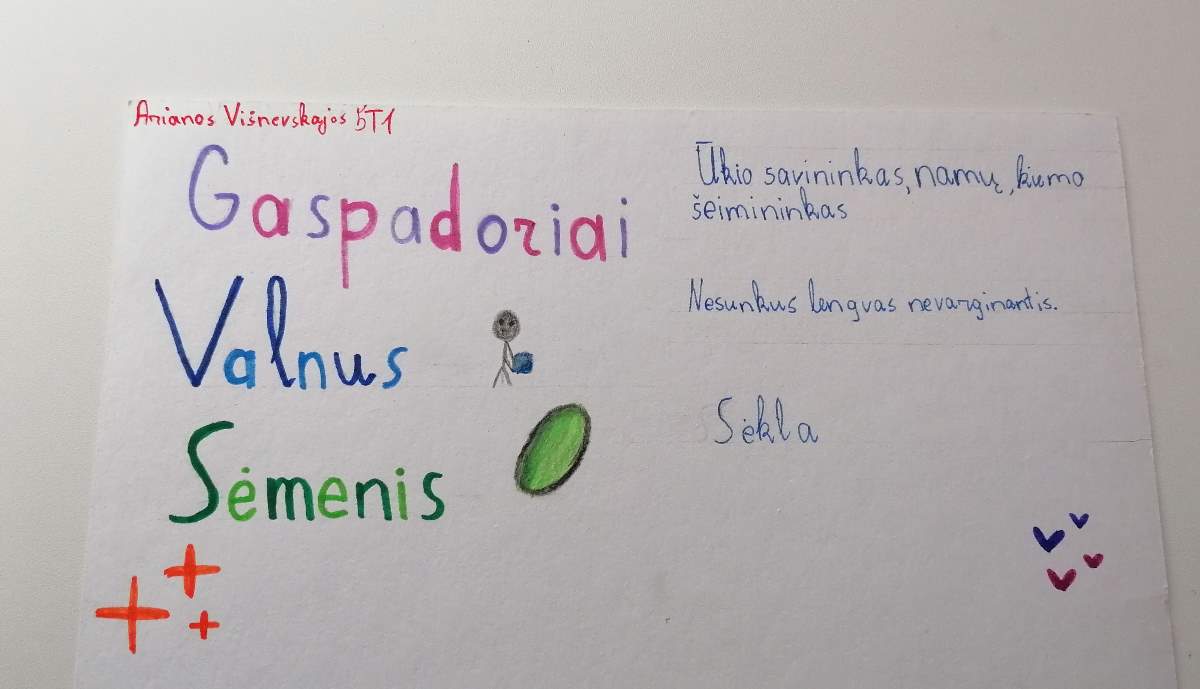 Arianos Višnevskajos 5T1
Gaspadoriai
Ūkio savininkas, namų, kiemo
šeimininkas
Valnus
Nesunkus lengvas nevarginantis.
Sėmenis
Sėkla